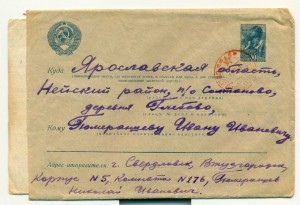 Куда Ярославская область,
Нейский район, п/о Солтаново,
деревня Глебово,
Кому Померанцеву Ивану Ивановичу
Адрес отправителя: г. Свердловск, Втузгородок,
Корпус №5, Комната №176, Померанцев
Николай Иванович.